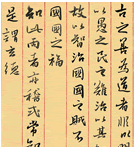 古之善為道者非以明
愚之民之難治以其
故以智治國國之賊
國國之福
知此兩者亦稽式常知
是謂玄德